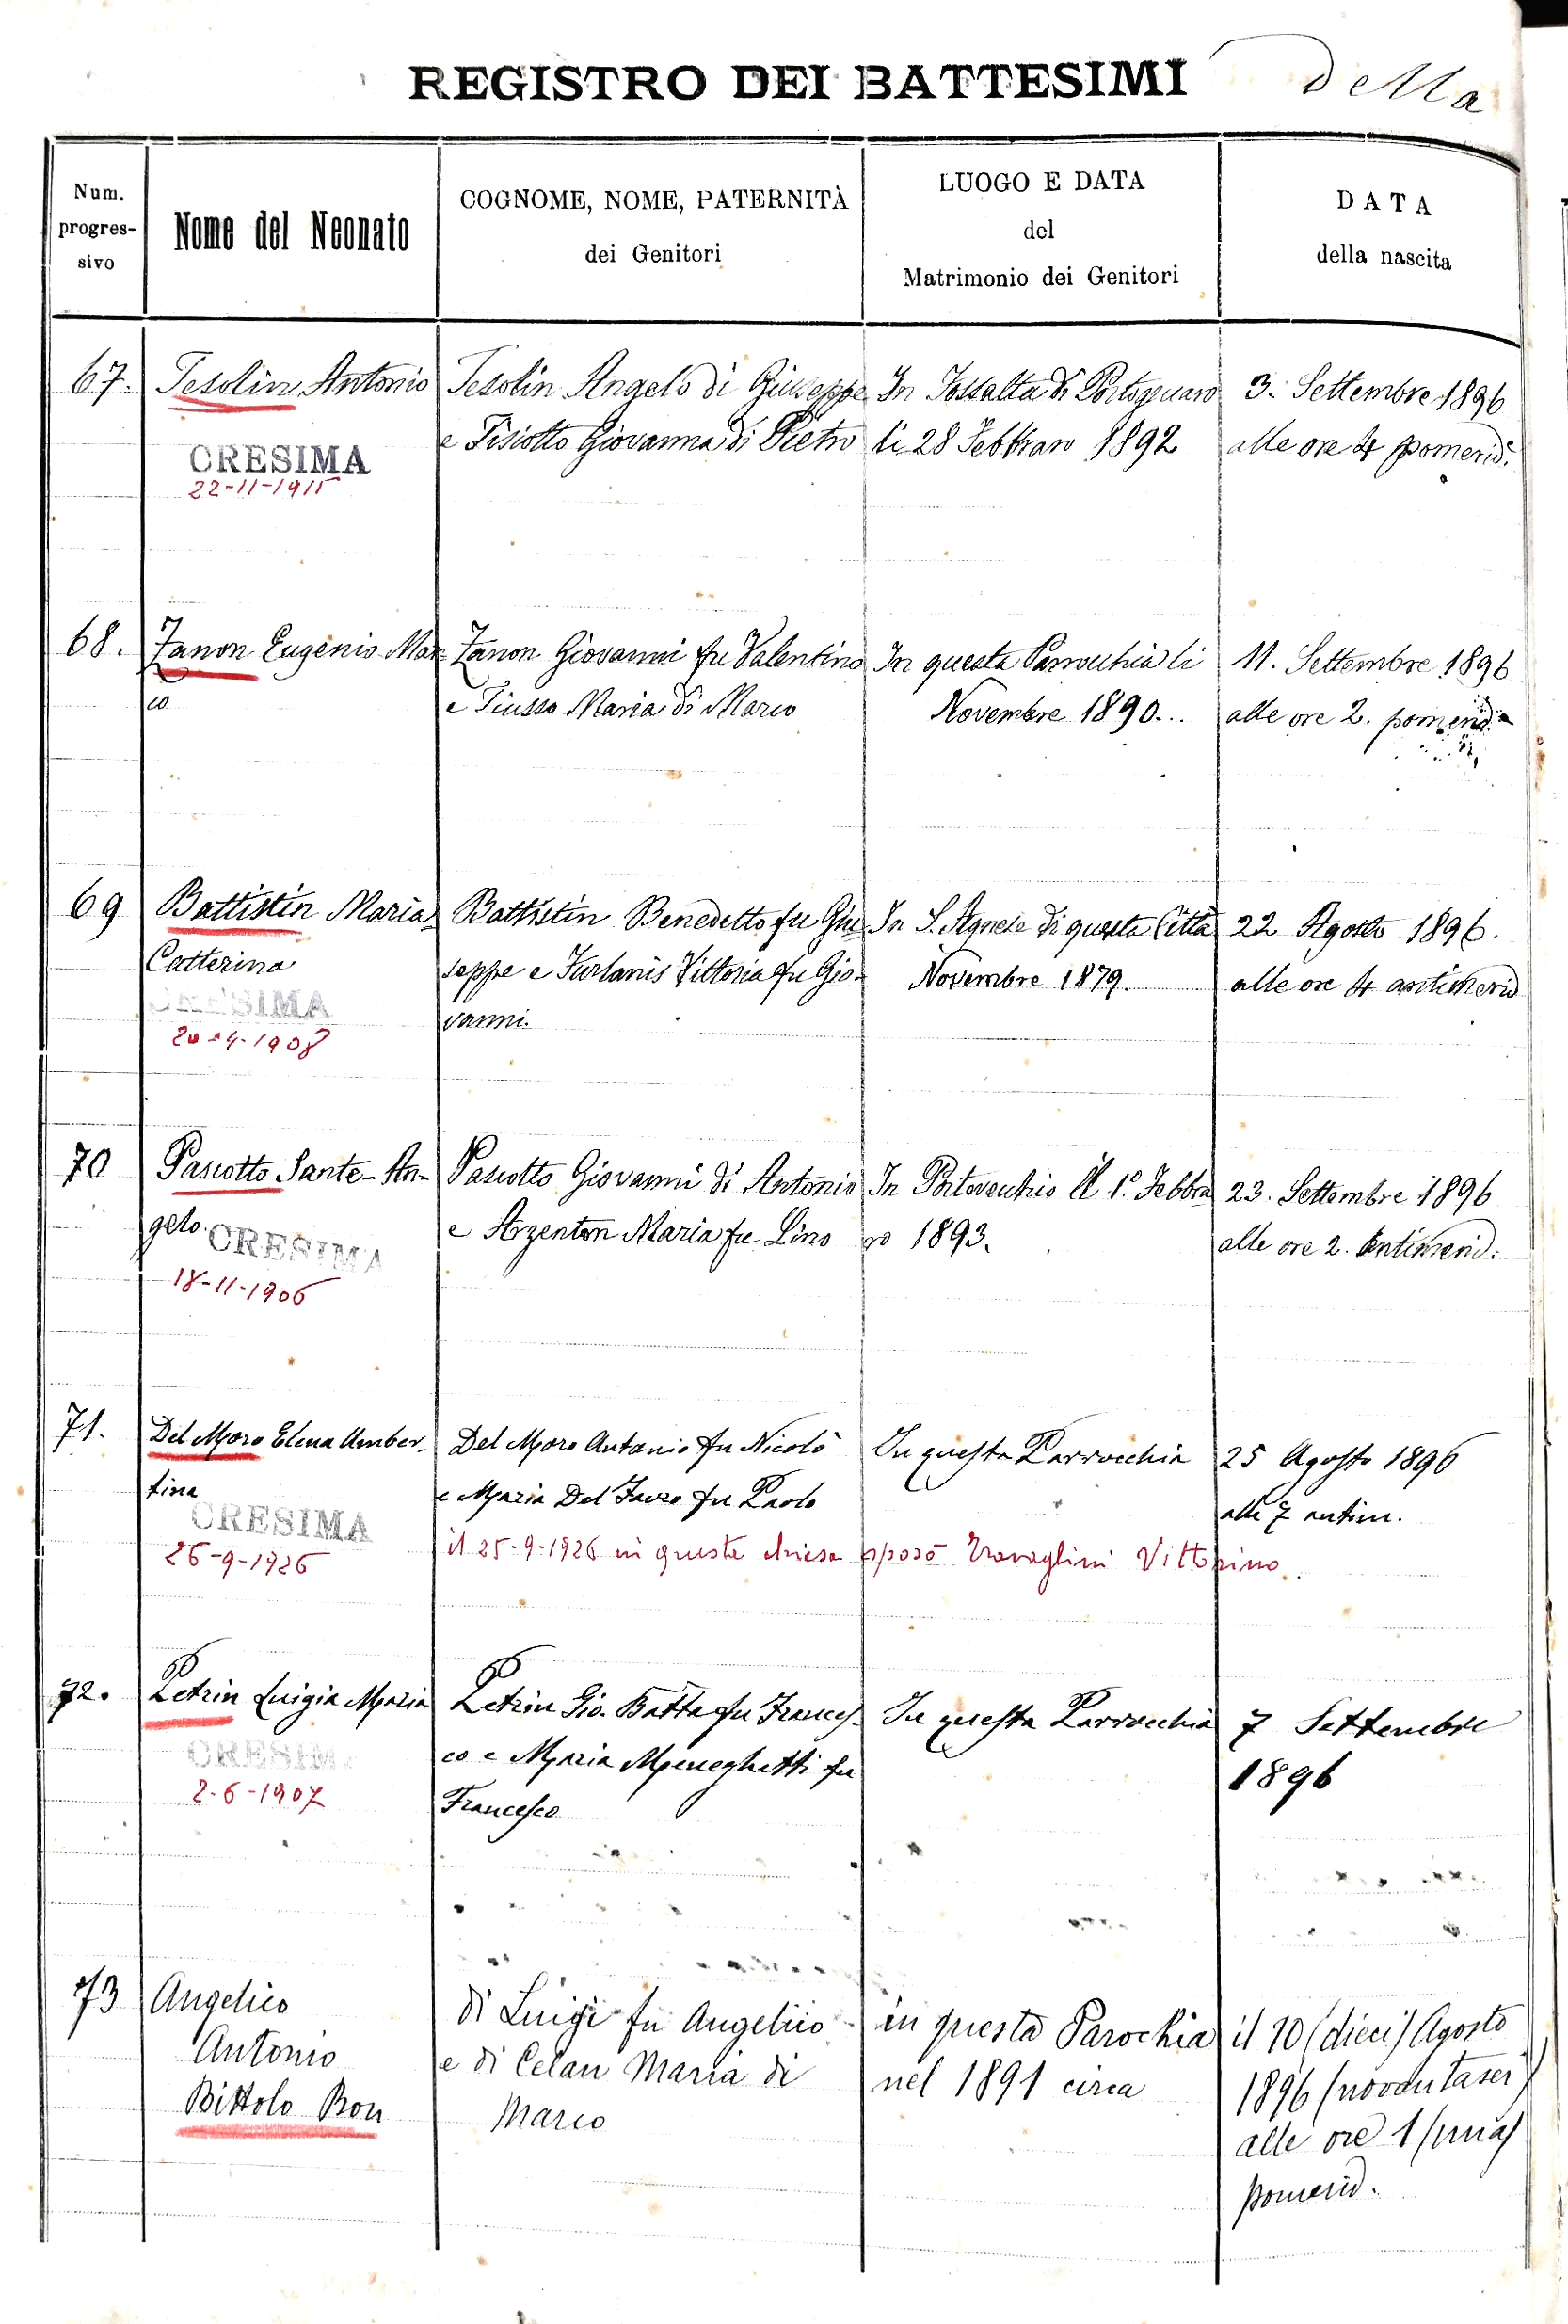 REGISTRO DEI BATTESIMI della
Num.
progres-
sivo
Nome del Neonato
COGNOME, NOME, PATERNITÀ
dei Genitori
LUOGO E DATA
del
Matrimonio dei Genitori
DATA
della nascita
67. Tesolin Antonio
CRESIMA
22-11-1911
Tesolin Angelo di Giuseppe
e Pisiotto Giovanna di Pietro
In Fossalta di Portogruaro
li 28 Febbraro 1892
3. Settembre 1896
alle ore 4 pomerid.
68. Zanon Eugenio Mar
co
Zanon Giovanni fu Valentino
e Tiusso Maria di Marco
In questa Parrocchia li
Novembre 1890..
11. Settembre 1896
alle ore 2. pomerid.
69 Battistin Maria
Catterina
CRESIMA
20-4-1908
Battistin Benedetto fu Giu
seppe e Furlanis Vittoria fu Gio-
vanni.
In S. Agnese di questa Città
Novembre 1879.
22 Agosto 1896.
alle ore 4 antimerid
70 Pasiotto Sante-An-
gelo.
CRESIMA
18-11-1906
Pasiotto Giovanni di Antonio
e Arzenton Maria fu Lino
In Portovecchio il 1.º Febbra
ro 1893.
23. Settembre 1896
alle ore 2. antimerid.
71. Del Moro Elena Umber-
tina
CRESIMA
26-9-1926
Del Moro Antonio fu Nicolò
e Maria Del Favro fu Paolo
il 25-9-1926 in questa chiesa sposò Travaglini Vittorino.
In questa Parrocchia
25 Agosto 1896
alle 7 antim.
72. Petrin Luigia Maria
CRESIMA
2-6-1907
Petrin Gio. Batta fu Frances-
co e Maria Meneghetti fu
Francesco
In questa Parrocchia
7 Settembre
1896
73 Angelico
Antonio
Bittolo Bon
di Luigi fu Angelico
e di Celan Maria di
Marco
in questa Parochia
nel 1891 circa
il 10 (dieci) Agosto
1896 (novantasei)
alle ore 1 (una)
pomerid.